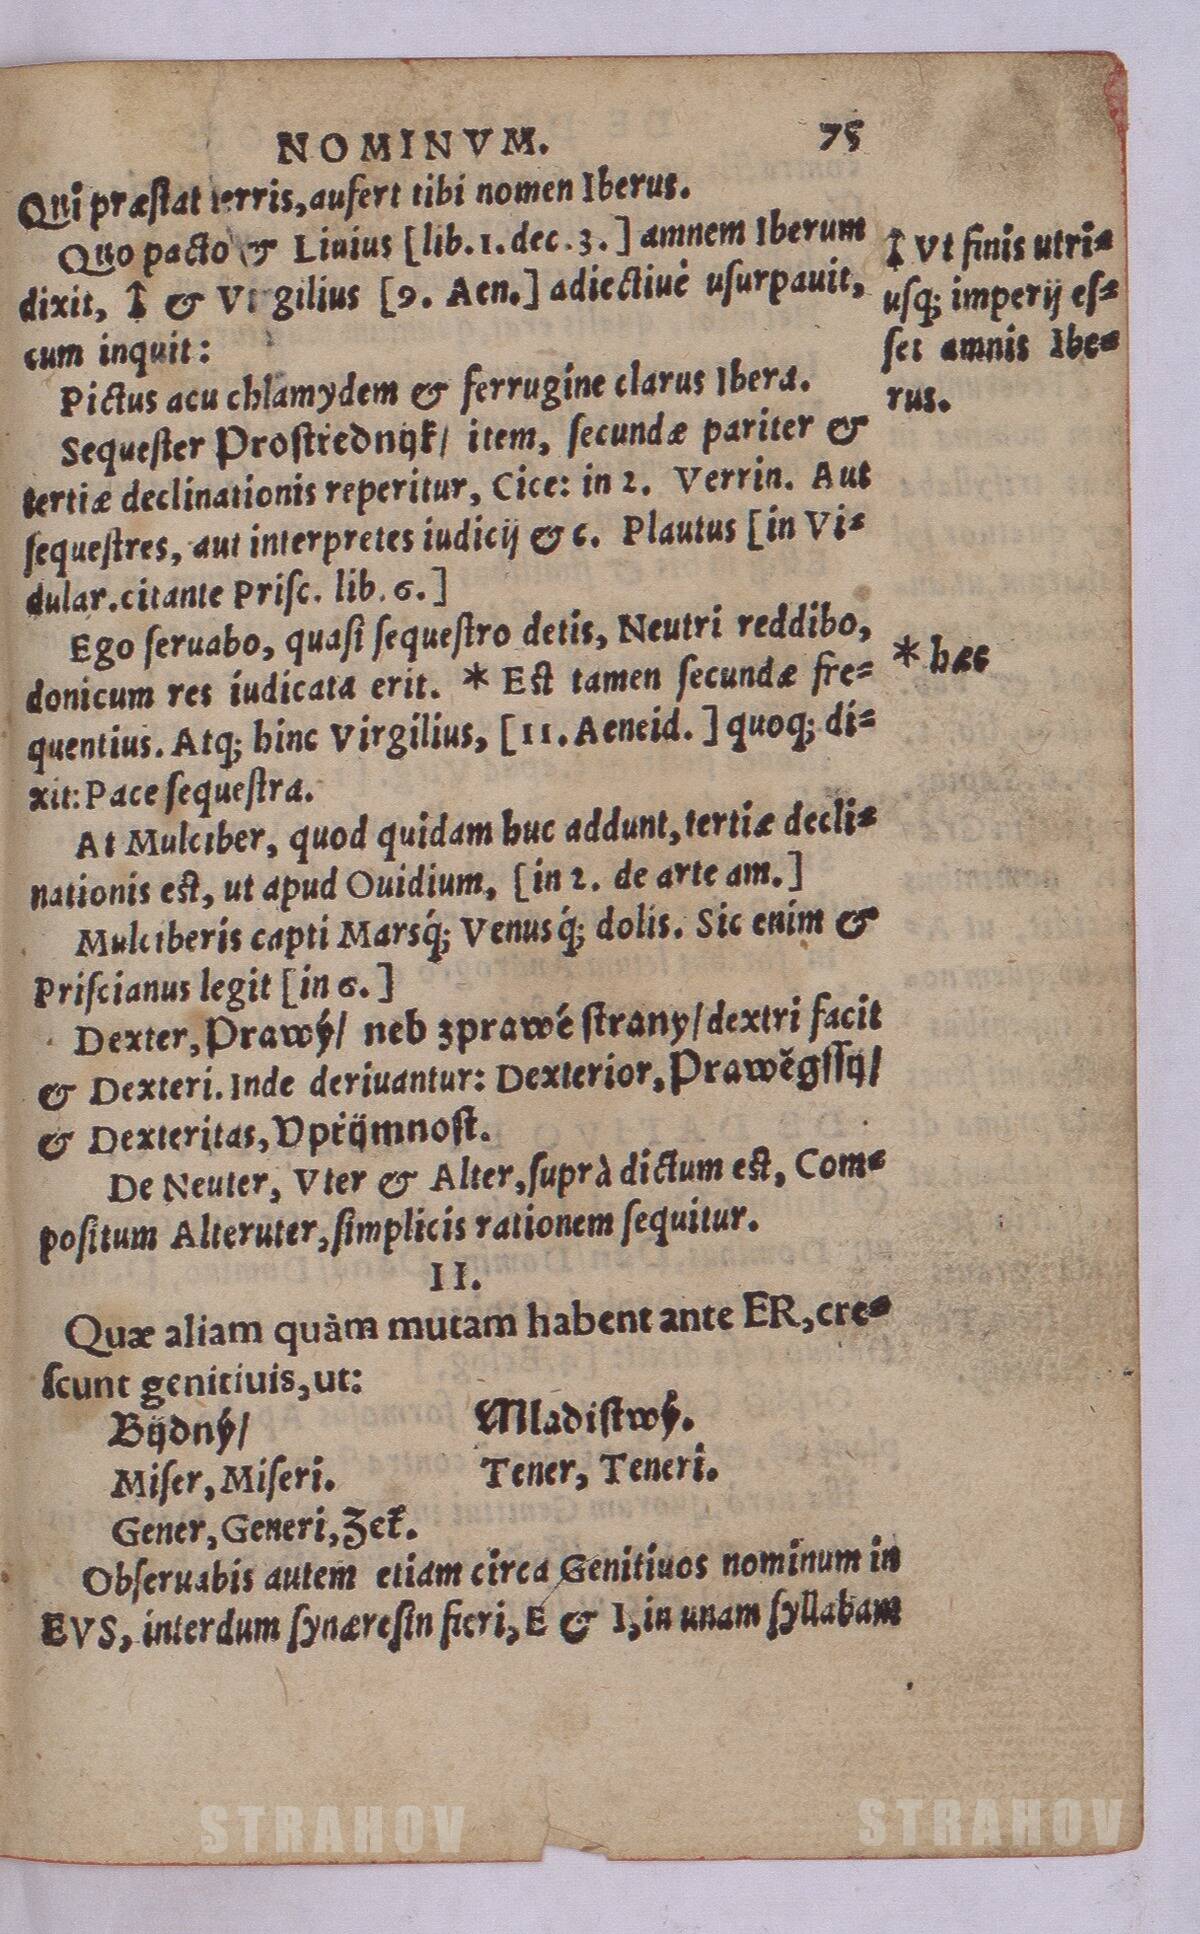 NOMINVM. 75
Qui præstat terris, aufert tibi nomen Iberus.
Quo pacto & Liuius [lib. 1. dec. 3.] amnem Iberum
dixit, ‡ & Virgilius [9. Aen.] adiectiuè usurpauit,
cum inquit:
Pictus acu chlamydem & ferrugine clarus Ibera.
Sequester Prostřednijk/ item, secundæ pariter &
tertiæ declinationis reperitur, Cice: in 2. Verrin. Aut
sequestres, aut interpretes iudicij & c. Plautus [in Vi-
dular. citante Prisc. lib. 6.]
Ego seruabo, quasi sequestro detis, Neutri reddibo,
donicum res iudicata erit. * Est tamen secundæ fre-
quentius. Atq; hinc Virgilius, [11. Aeneid.] quoq; di-
xit: Pace sequestra.
At Mulciber, quod quidam huc addunt, tertiæ decli-
nationis est, ut apud Ouidium, [in 2. de arte am.]
Mulciberis capti Marsq́; Venusq́; dolis. Sic enim &
Priscianus legit [in 6.]
Dexter, Prawý/ neb zprawé strany/ dextri facit
& Dexteri. Inde deriuantur: Dexterior, Prawěgssij/
& Dexteritas, Vpřijmnost.
De Neuter, Vter & Alter, suprà dictum est, Com-
positum Alteruter, simplicis rationem sequitur.
II.
Quæ aliam quàm mutam habent ante ER, cre-
scunt genitiuis, ut:
Bijdný/ Mladistwý.
Miser, Miseri. Tener, Teneri.
Gener, Generi, Zeť.
Obseruabis autem etiam circa Genitiuos nominum in
EVS, interdum synæresin fieri, E & I, in unam syllabam
‡ Vt finis utri-
usq; imperij es-
set amnis Ibe-
rus.
* hæc
STRAHOV STRAHOV